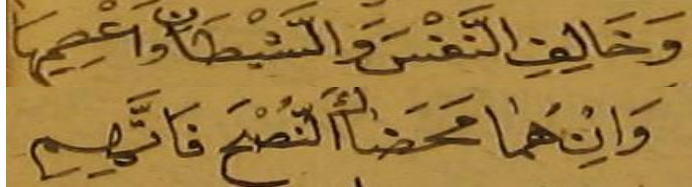 وَخَالِفِ النَّفْسَ وَالشَّيْطَانَ وَاعْصِهِمَا
وَاِنْ هُمَا مَحَضَاكَ النُّصْحَ فَاتَّهِمِ